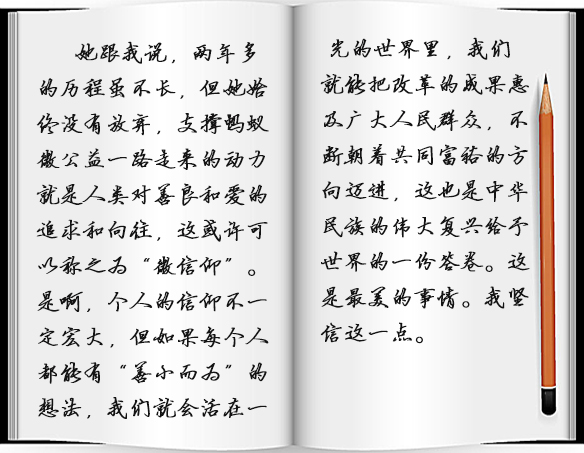 她跟我说，两年多
的历程虽不长，但她始
终没有放弃，支撑蚂蚁
微公益一路走来的动力
就是人类对善良和爱的
追求和向往，这或许可
以称之为“微信仰”。
是啊，个人的信仰不一
定宏大，但如果每个人
都能有“善小而为”的
想法，我们就会活在一
光的世界里，我们
就能把改革的成果惠
及广大人民群众，不
断朝着共同富裕的方
向迈进，这也是中华
民族的伟大复兴给予
世界的一份答卷。这
是最美的事情。我坚
信这一点。